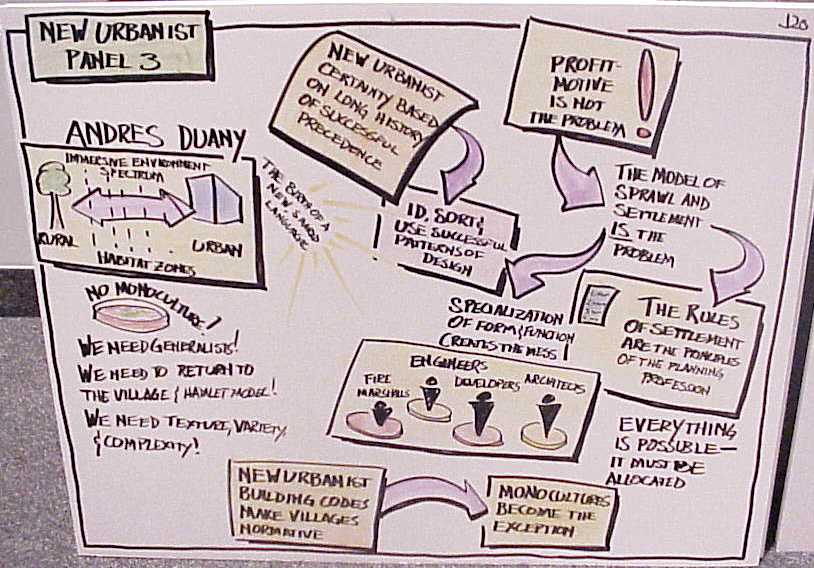 120
NEW URBANIST
PANEL 3
NEW URBANIST
CERTAINTY BASED
ON LONG HISTORY
OF SUCCESSFUL
PRECEDENCE
PROFIT-
MOTIVE
IS NOT
THE PROBLEM!
ANDRES DUANY
IMMERSIVE ENVIRONMENT
SPECTRUM
RURAL
URBAN
HABITAT ZONES
THE BIRTH OF A
NEW SHARED
LANGUAGE
I.D., SORT &
USE SUCCESSFUL
PATTERNS OF
DESIGN
THE MODEL OF
SPRAWL AND
SETTLEMENT
IS THE
PROBLEM
NO MONOCULTURE!
WE NEED GENERALISTS!
WE NEED TO RETURN TO
THE VILLAGE & HAMLET MODEL!
WE NEED TEXTURE, VARIETY,
& COMPLEXITY!
SPECIALIZATION
OF FORM & FUNCTION
CREATES THE MESS!
ENGINEERS
FIRE
MARSHALLS
DEVELOPERS
ARCHITECTS
THE RULES
OF SETTLEMENT
ARE THE PRINCIPLES
OF THE PLANNING
PROFESSION
EVERYTHING
IS POSSIBLE—
IT MUST BE
ALLOCATED
NEW URBANIST
BUILDING CODES
MAKE VILLAGES
NORMATIVE
MONOCULTURES
BECOME THE
EXCEPTION